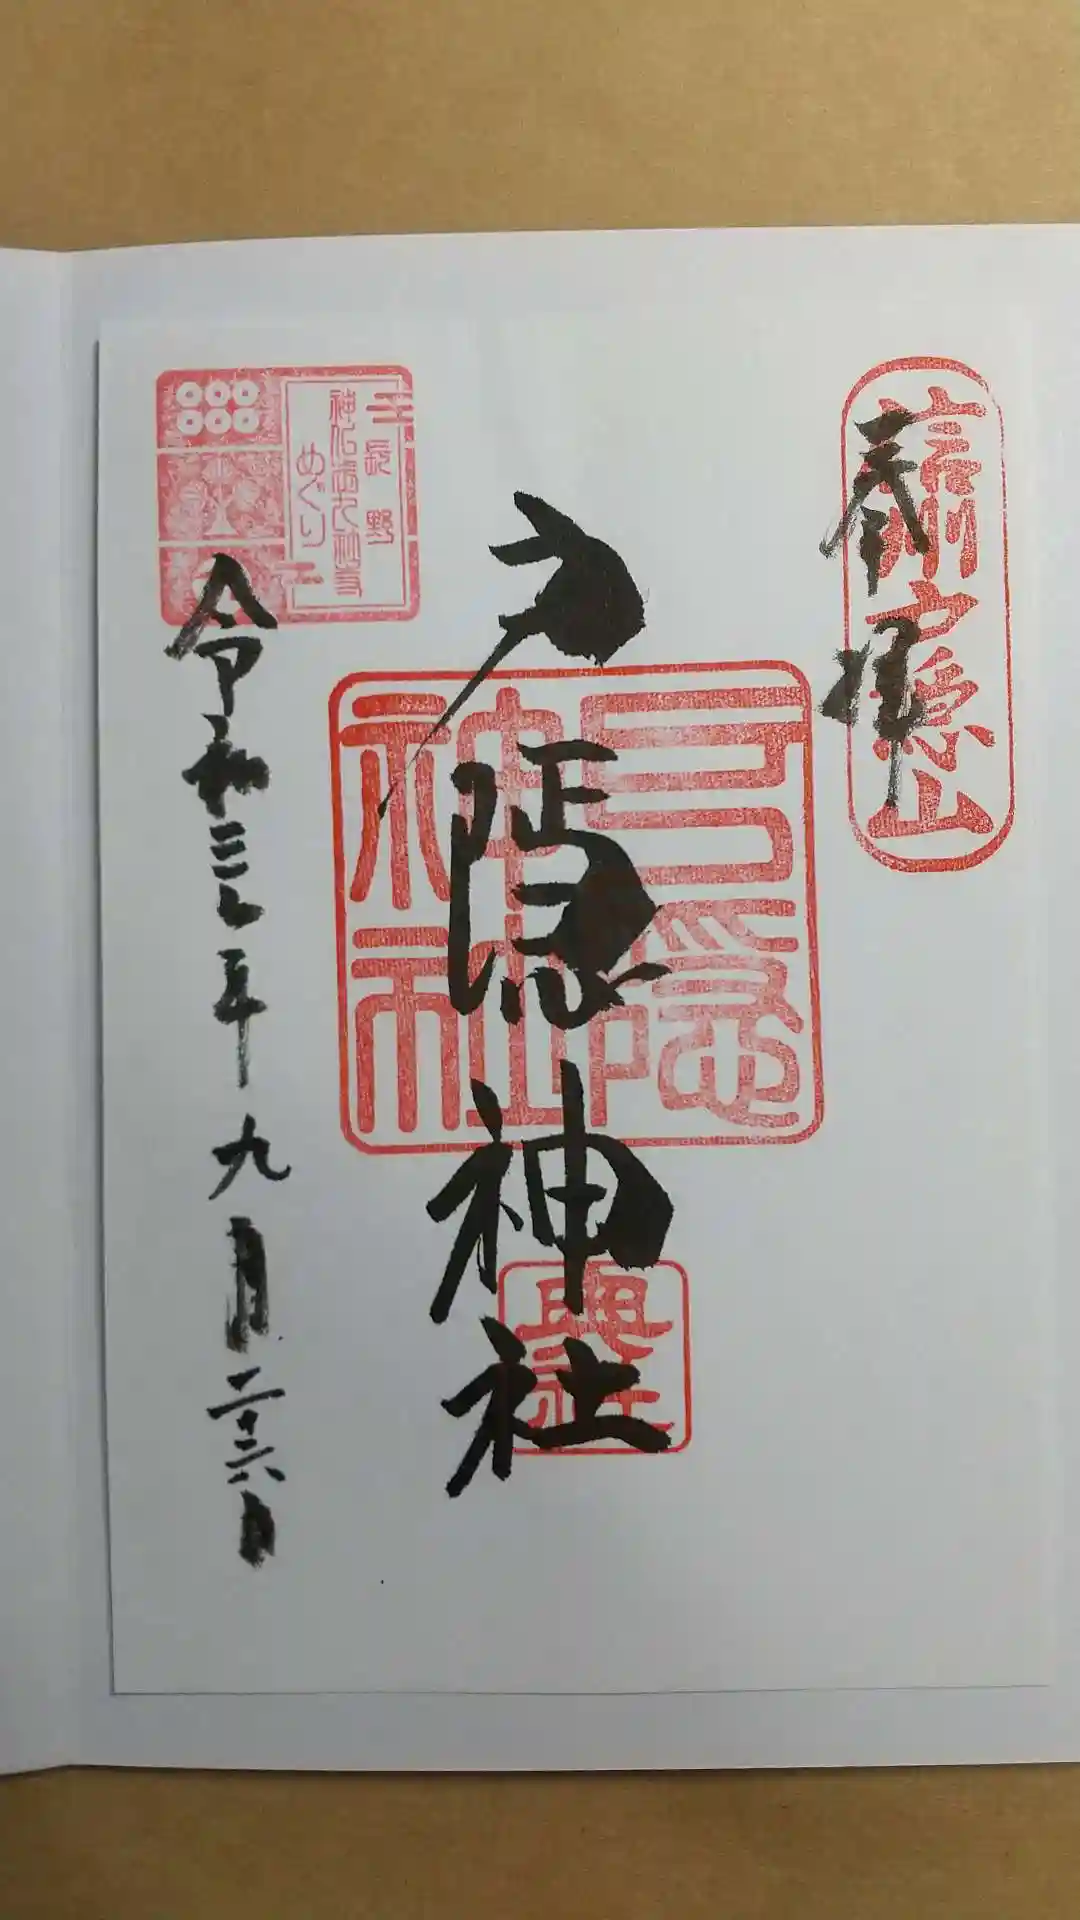 奉拝
信州戸隠山
戸隠神社
戸隠
神社
奥社
長野
神仏
めぐり
令和三年九月二十六日